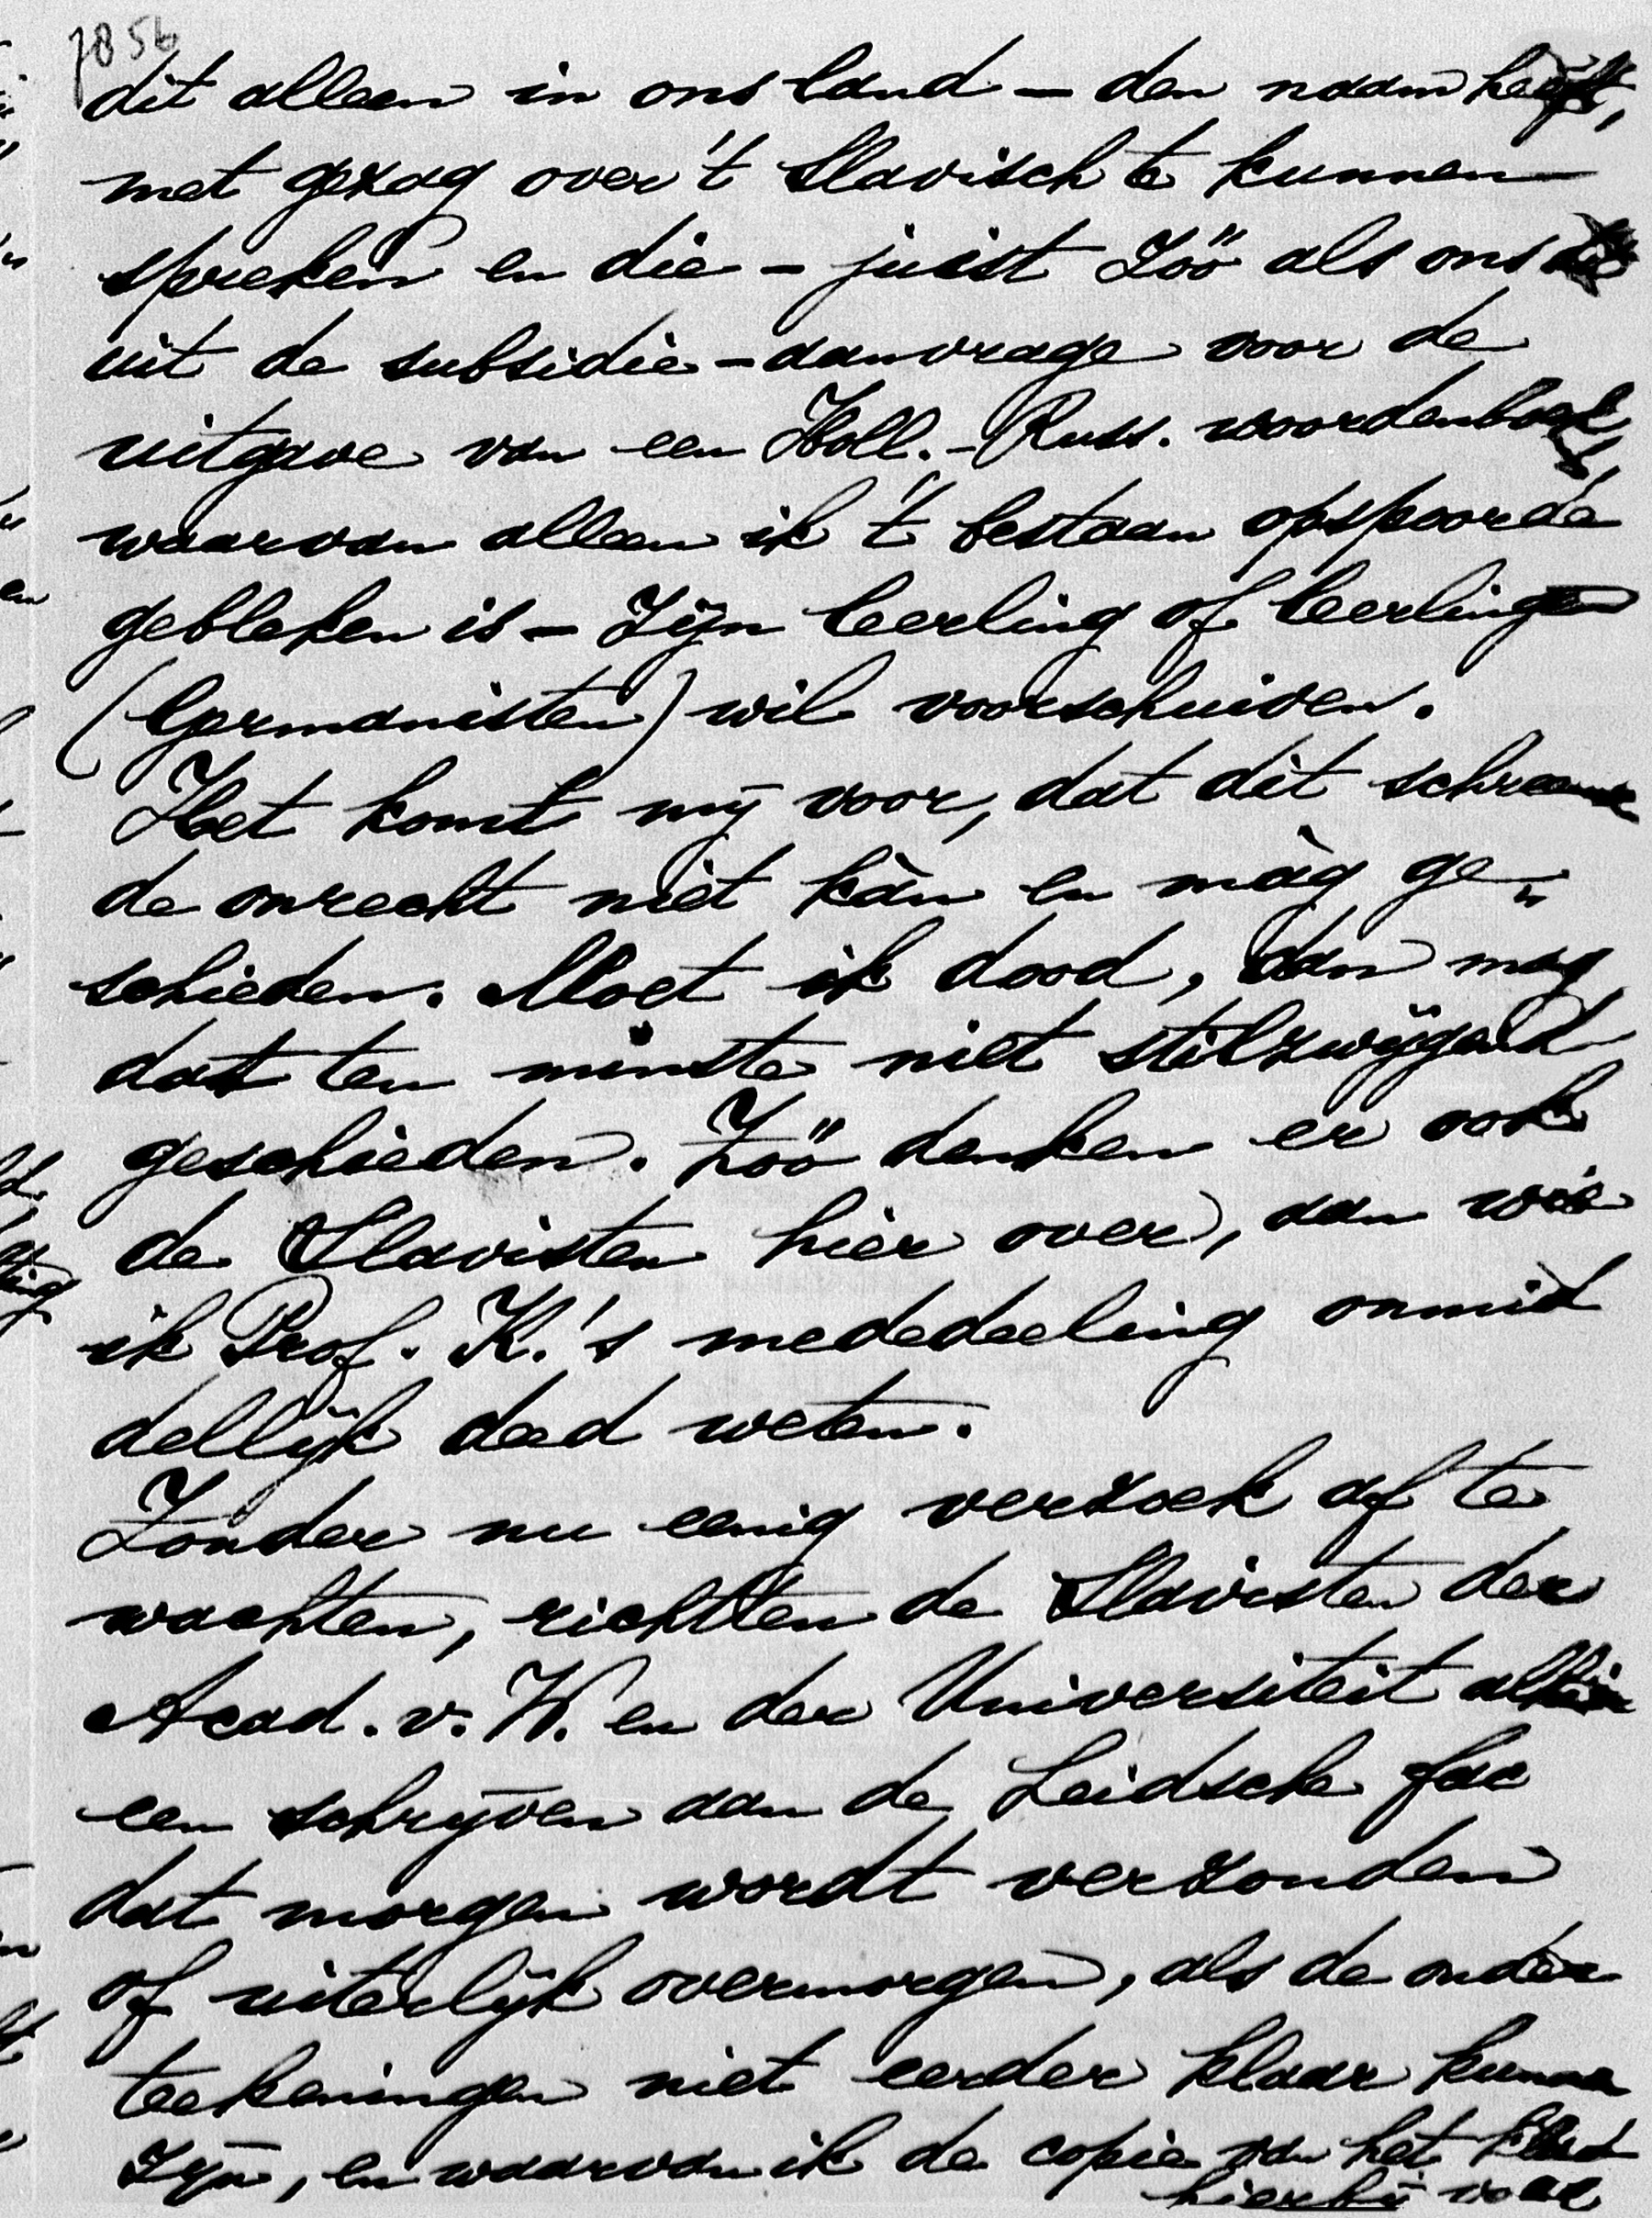 7856
dit alleen in ons land – den naam heeft,
met gezag over 't Slavisch te kunnen
spreken en die – juist zóó als ons dit
uit de subsidie-aanvrage voor de
uitgave van een Holl.-Russ. woordenboek,
waarvan alleen ik 't bestaan opspoorde
gebleken is – zijn leerling of leerlingen
(Germanisten) wil voorschuiven.
Het komt mij voor, dat dit schreeuwen
de onrecht niet kàn en màg ge-
schieden. Moet ik dood, dan mag
dat ten minste niet stilzwijgend
geschieden. Zóó denken er ook
de Slavisten hier over, aan wie
ik Prof. K.'s mededeeling onmid
dellijk deed weten.
Zonder nu eenig verzoek af te
wachten, richtten de Slavisten der
Acad. v. W. en der Universiteit alhier
een schrijven aan de Leidsche fac
dat morgen wordt verzonden
of uiterlijk overmorgen, als de onder
teekeningen niet eerder klaar kunnen
zijn, en waarvan ik de copie van het
hierbij voeg